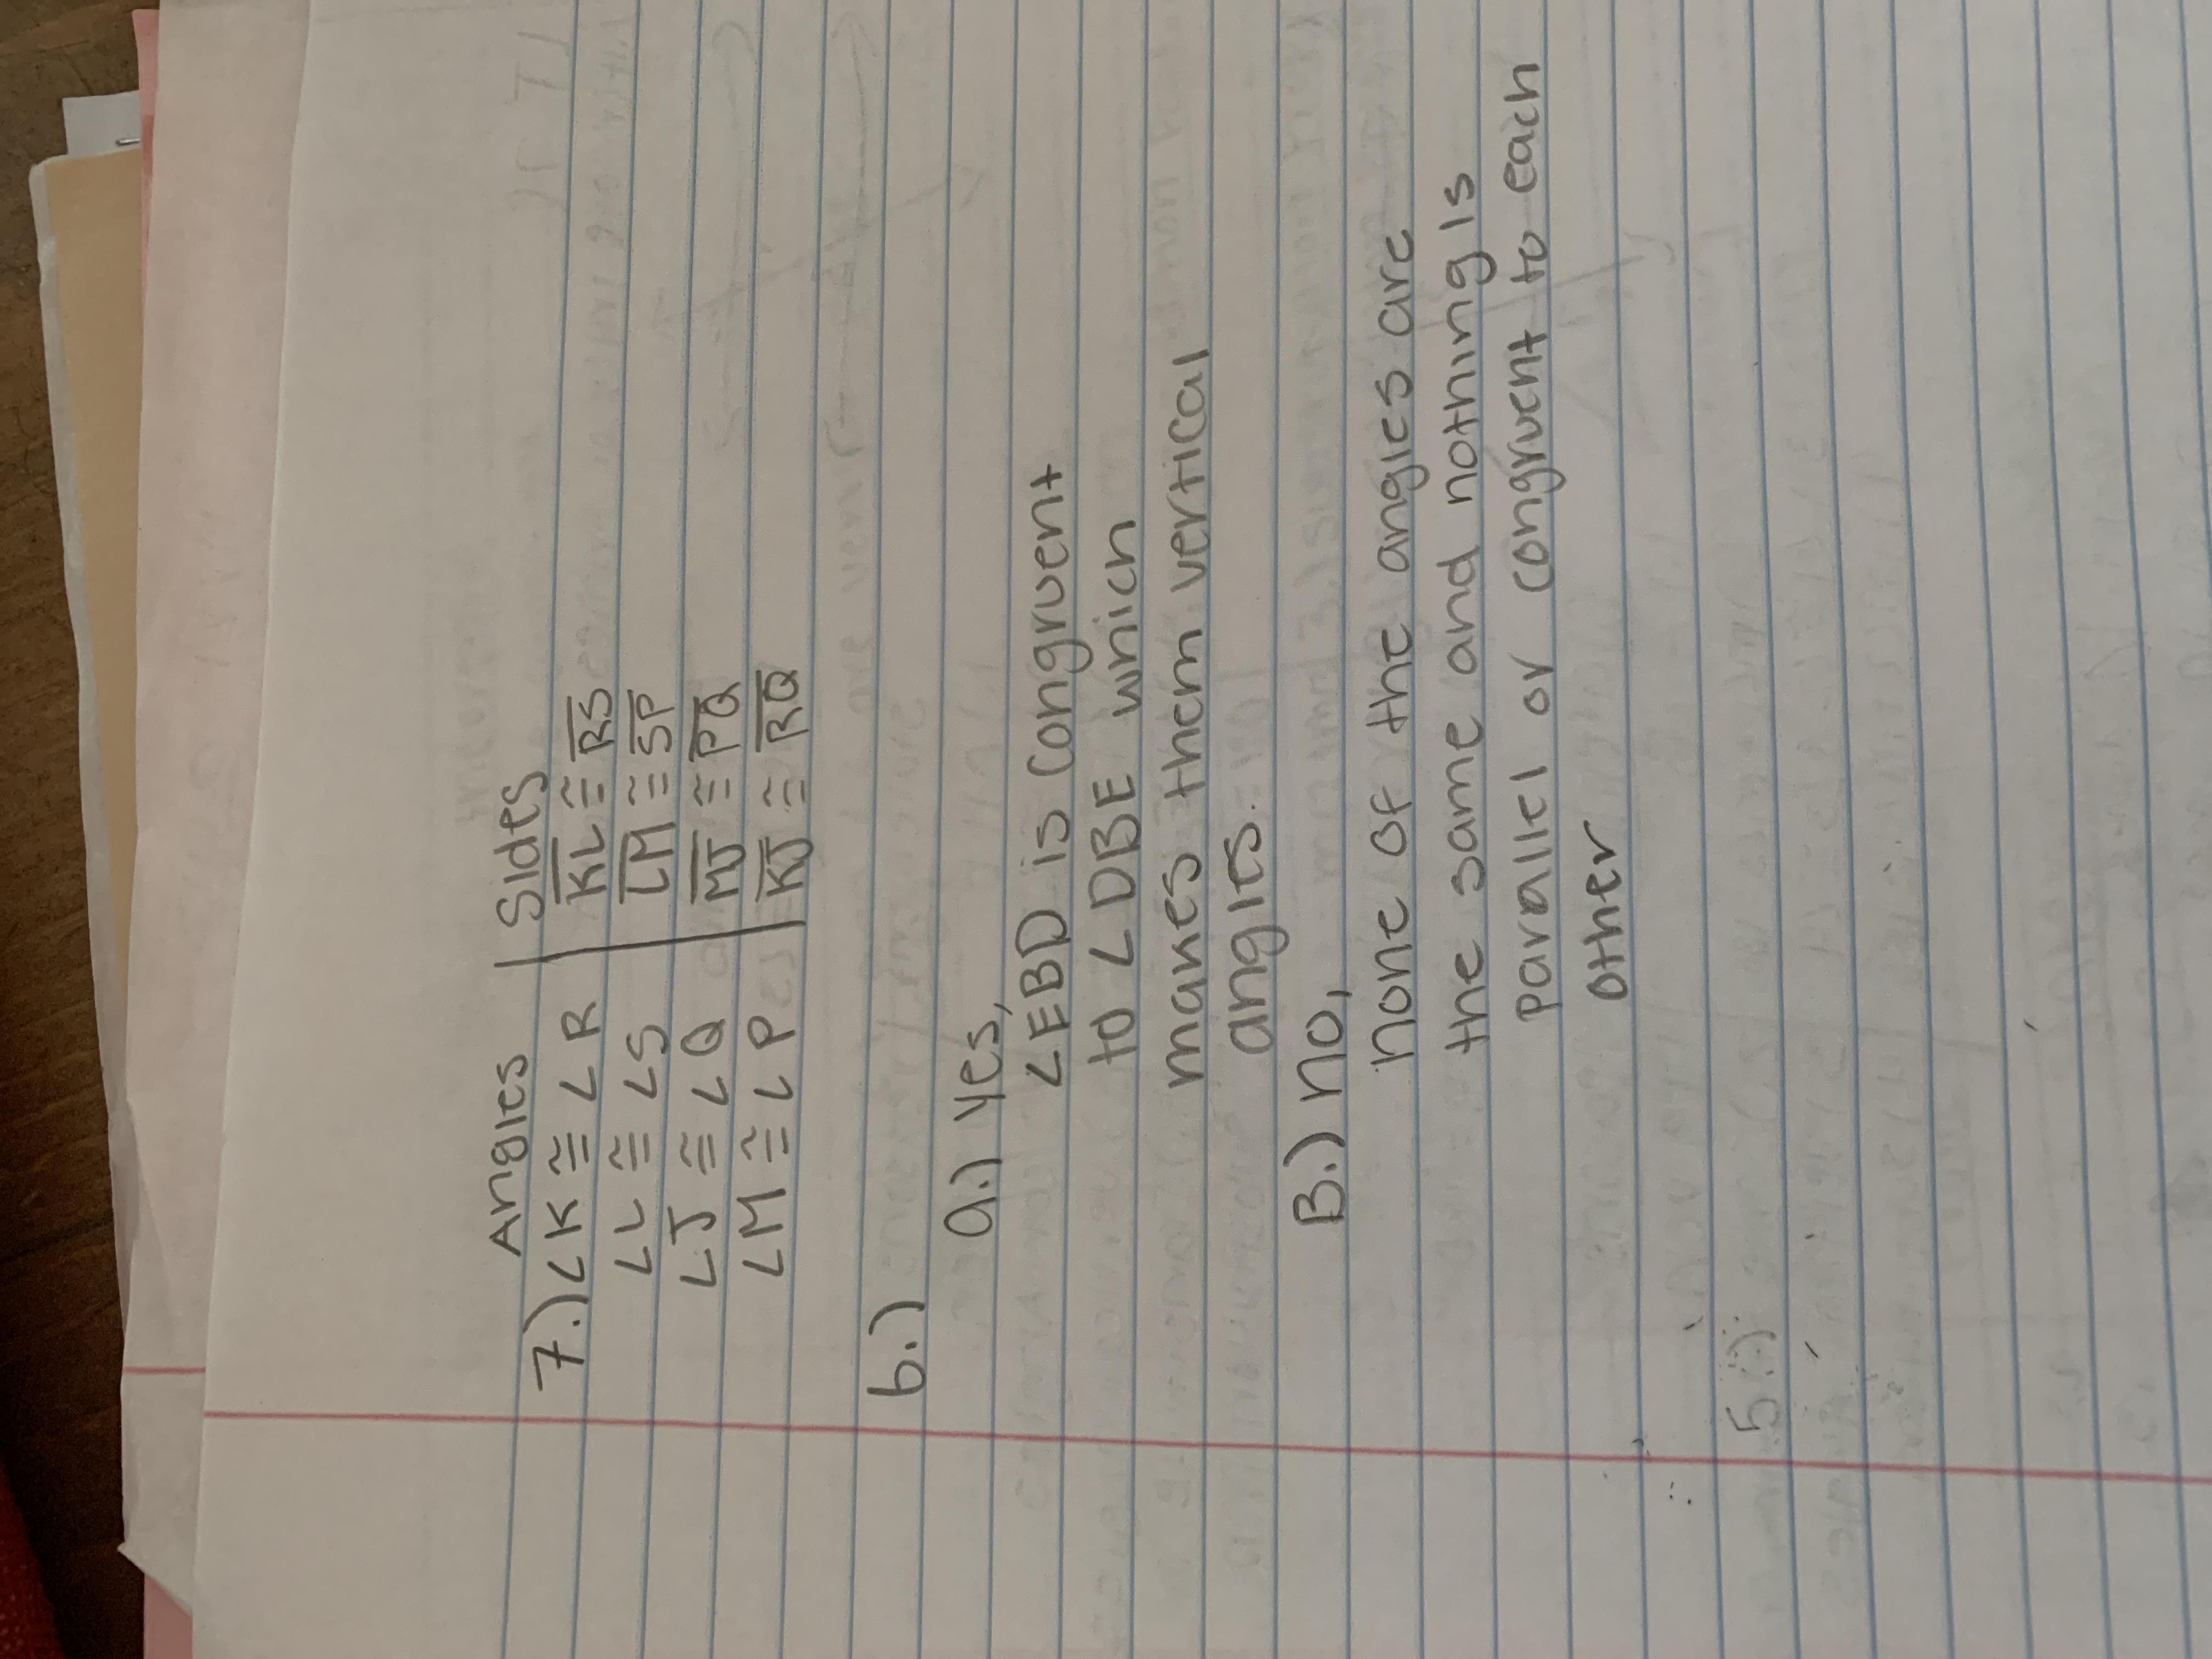 Angles | Sides
7.) ∠K ≅ ∠R | KL ≅ RS
∠L ≅ ∠S | LM ≅ SP
∠J ≅ ∠Q | MJ ≅ PQ
∠M ≅ ∠P | KJ ≅ RQ
6.)
a.) yes,
∠EBD is congruent
to ∠DBE which
makes them vertical
angles.
B.) no,
none of the angles are
the same and nothing is
parallel or congruent to each
other
5.)